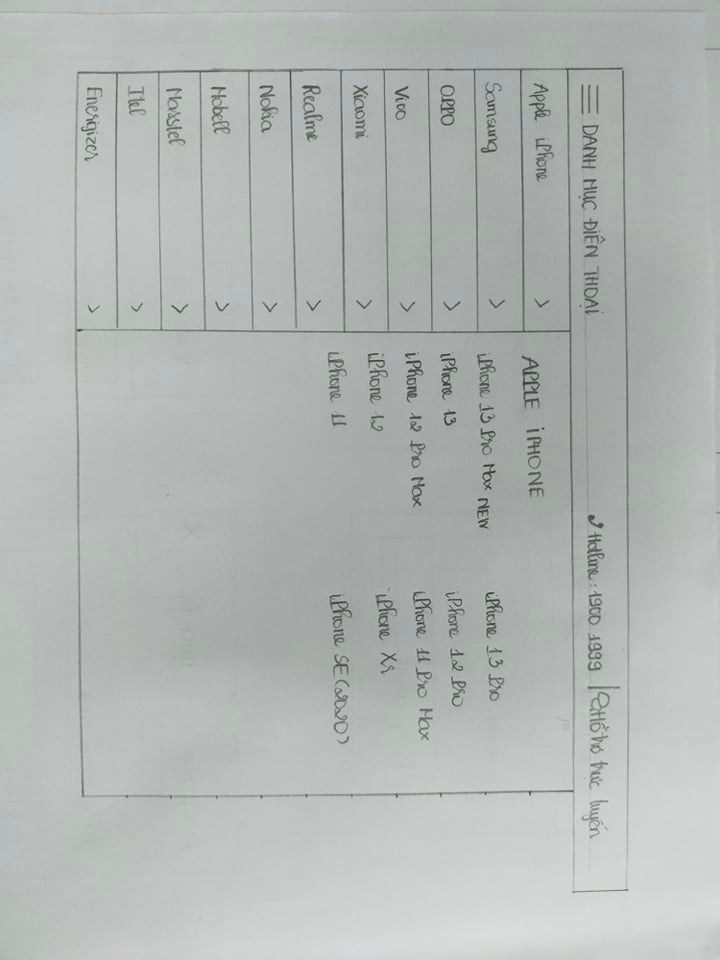 DANH MỤC ĐIÊN THOẠI
Hotline: 1900 1999
Hỗ trợ trực tuyến
Apple iPhone >
Samsung >
OPPO >
Vivo >
Xiaomi >
Realme >
Nokia >
Mobell >
Masstel >
Itel >
Energizer >
APPLE iPHONE
iPhone 13 Pro Max NEW
iPhone 13 Pro
iPhone 13
iPhone 12 Pro
iPhone 12 Pro Max
iPhone 11 Pro Max
iPhone 12
iPhone Xr
iPhone 11
iPhone SE (2020)